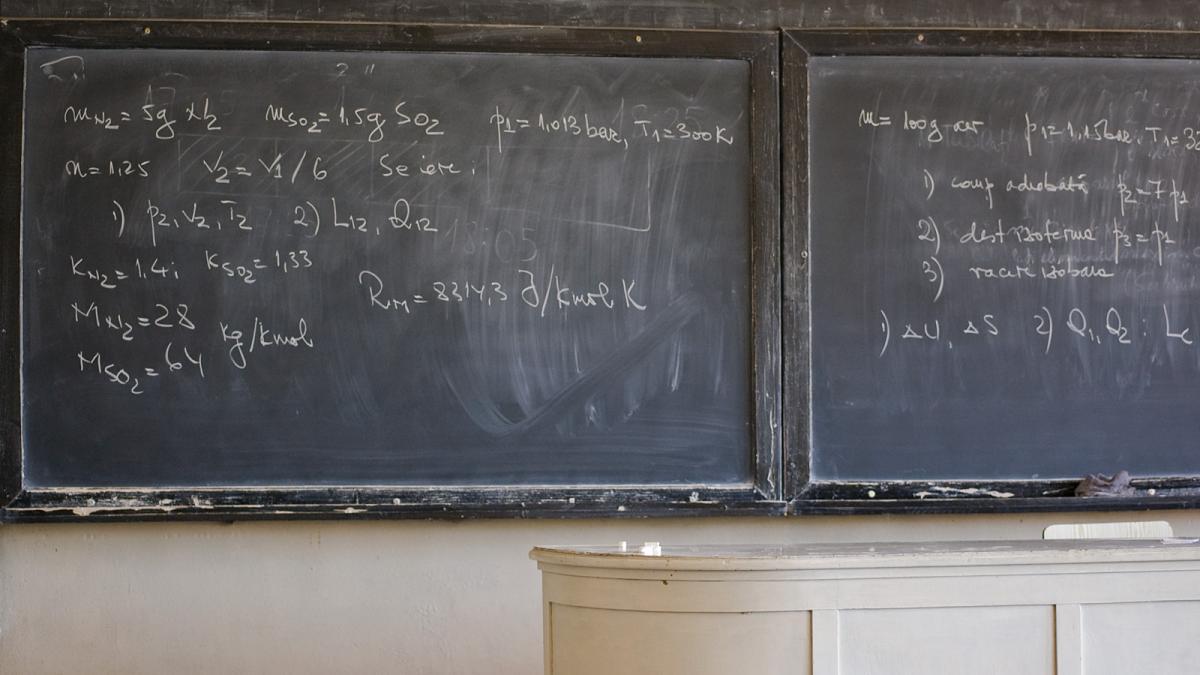 m_N₂ = 5g N₂   m_SO₂ = 1,5g SO₂   p₁ = 1,013 bar, T₁ = 300K
n = 1,25   V₂ = V₁/6   Se cere:
1) p₂, V₂, T₂   2) L₁₂, Q₁₂
K_N₂ = 1.4;   K_SO₂ = 1,33
R_M = 8314,3 J/kmol K
M_N₂ = 28
kg/kmol
M_SO₂ = 64
m = 100g aer   p₁ = 1,15bar, T₁ = 30
1) comp adiabată   p₂ = 7 p₁
2) dest izoterma   p₃ = p₁
3) racire izobara
1) ΔU, ΔS   2) Q₁, Q₂ ; Lc